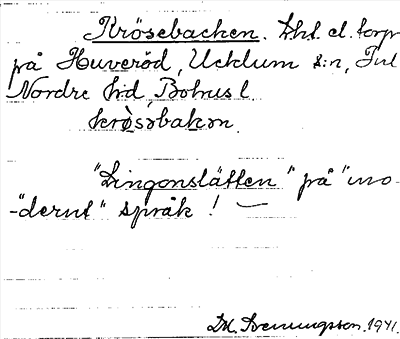 Krösebacken. Lht. el. torp
på Huveröd, Ucklum s:n, Inl.
Nordre hd, Bohus l.
krɵ̀səbakən.
"Lingonslätten" på "mo-
-"dernt" språk! —
1941.